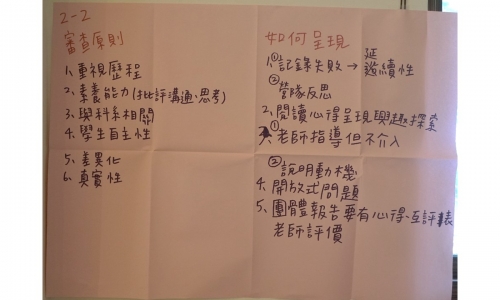 2-2
審查原則
1、重視歷程
2、素養能力(批評溝通、思考)
3、與科系相關
4、學生自主性
5、差異化
6、真實性
如何呈現
1、①記錄失敗→延續性
②營隊反思
2、閱讀心得呈現興趣探索
①老師指導但不介入
②說明動機
4、開放式問題
5、團體報告要有心得、互評表
老師評價